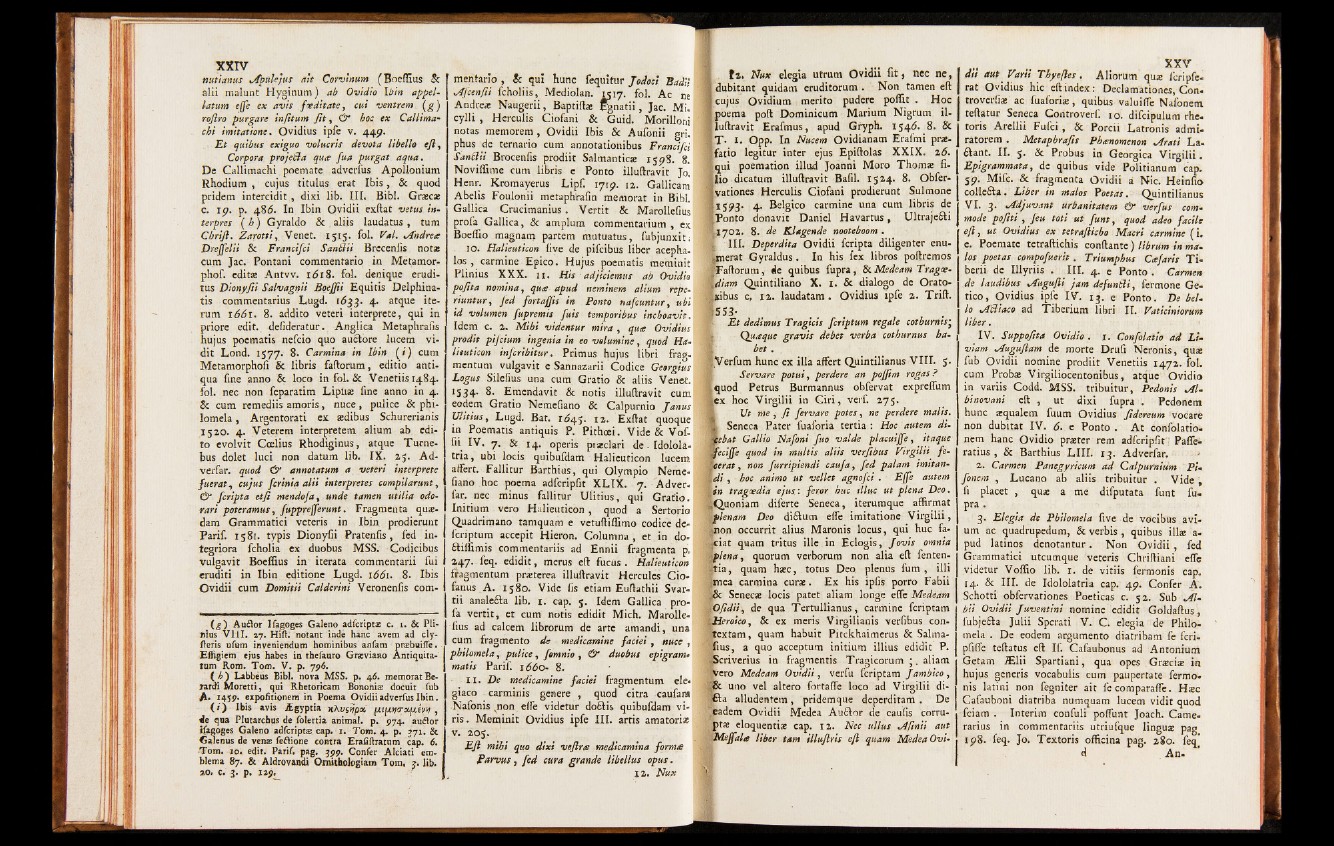 XXIV
nutianus Apulejus ait Corvinum (Boeſſius &
alii malunt Hyginum) ab Ovidio Ibin appel-
latum eſſe ex avis fœditate, cui ventrem (g)
roſtro purgare inſitum ſit, & hoc ex Callima-
chi imitatione. Ovidius ipſe v. 449.
Et quibus exiguo volucris devota libello eſt,
Corpora projecta quæ ſua purgat aqua.
De Callimachi poemate adverſus Apollonium
Rhodium, cujus titulus erat Ibis, & quod
pridem intercidit, dixi lib. III. Bibl. Græcæ
c. 19. p. 486. In Ibin Ovidii exſtat vetus in-
terpres (h) Gyraldo & aliis laudatus, tum
Chriſt. Zarotti, Venet. 1515. fol. Val. Andreæ
Dreſſelii & Franciſci Sanctii Brocenſis notæ
cum Jac. Pontani commentario in Metamor-
phoſ. editæ Antvv. 1618. fol. denique erudi-
tus Dionyſii Salvagnii Boeſſii Equitis Delphina-
tis commentarius Lugd. 1633. 4. atque ite-
rum 1661. 8. addito veteri interprete, qui in
priore edit. deſideratur. Anglica Metaphraſis
hujus poematis neſcio quo auctore lucem vi-
dit Lond. 1577. 8. Carmina in Ibin (i) cum
Metamorphoſi & libris faſtorum, editio anti-
qua ſine anno & loco in fol. & Venetiis 1484.
fol. nec non ſeparatim Lipſiæ ſine anno in 4.
& cum remediis amoris, nuce, pulice & phi-
lomela, Argentorati ex ædibus Schurerianis
1520. 4. Veterem interpretem alium ab edi-
to evolvit Cœlius Rhodiginus, atque Turne-
bus dolet luci non datum lib. IX. 25. Ad-
verſar. quod & annotatum a veteri interprete
fuerat, cujus ſcrinia alii interpretes compilarunt,
& ſcripta etſi mendoſa, unde tamen utilia odo-
rari poteramus, ſuppreſſerunt. Fragmenta quæ-
dam Grammatici veteris in Ibin prodierunt
Pariſ. 1581. typis Dionyſii Pratenſis, ſed in-
tegriora ſcholia ex duobus MSS. Codicibus
vulgavit Boeſſius in iterata commentarii ſui
eruditi in Ibin editione Lugd. 1661. 8. Ibis
Ovidii cum Domitii Calderini Veronenſis com-
(g) Auctor Iſagoges Galeno adſcriptæ c. 1. & Pli-
nius VIII. 27. Hiſt. notant inde hanc avem ad cly-
ſteris uſum inveniendum hominibus anſam præbuiſſe.
Effigiem ejus habes in theſauro Græviano Antiquita-
tum Rom. Tom. V. p. 796.
(h) Labbeus Bibl. nova MSS. p. 46. memorat Be-
rardi Moretti, qui Rhetoricam Bononiæ docuit ſub
A. 1459. expoſitionem in Poema Ovidii adverſus Ibin.
(i) Ibis avis Ægyptia
de qua Plutarchus de ſolertia animal. p. 974. auctor
iſagoges Galeno adſcriptæ cap. 1. Tom. 4. p. 371. &
Galenus de venæ ſectione contra Eraſiſtratum cap. 6.
Tom. 10. edit. Pariſ. pag. 399. Confer Alciati em-
blema 87. & Aldrovandi Ornithologiam Tom. 3. lib.
20. c. 3. p. 129.
mentario, & qui hunc ſequitur Jodoci Badii
Aſcenſii ſcholiis, Mediolan. 1517. fol. Ac ne
Andreæ Naugerii, Baptiſtæ Egnatii, Jac. Mi-
cylli, Herculis Ciofani & Guid. Morilloni
notas memorem, Ovidii Ibis & Auſonii gri-
phus de ternario cum annotationibus Franciſci
Sanctii Brocenſis prodiit Salmanticæ 1598. 8.
Noviſſime cum libris e Ponto illuſtravit Jo.
Henr. Kromayerus Lipſ. 1719. 12. Gallicam
Abelis Foulonii metaphraſin memorat in Bibl.
Gallica Crucimanius. Vertit & Marolleſius
proſa Gallica, & amplum commentarium, ex
Boeſſio magnam partem mutuatus, ſubjunxit.
10. Halieuticon ſive de piſcibus liber acepha-
los, carmine Epico. Hujus poematis meminit
Plinius XXX. 11. His adjiciemus ab Ovidio
poſita nomina, quæ apud neminem alium repe-
riuntur, ſed fortaſſis in Ponto naſcuntur, ubi
id volumen ſupremis ſuis temporibus inchoavit.
Idem c. 2. Mihi videntur mira, quæ Ovidius
prodit piſcium ingenia in eo volumine, quod Ha-
lieuticon inſcribitur. Primus hujus libri frag-
mentum vulgavit e Sannazarii Codice Georgius
Logus Sileſius una cum Gratio & aliis Venet.
1534. 8. Emendavit & notis illuſtravit cum
eodem Gratio Nemeſiano & Calpurnio Janus
Ulitius, Lugd. Bat. 1645. 12. Exſtat quoque
in Poematis antiquis P. Pithœi. Vide & Voſ-
ſii IV. 7. & 14. operis præclari de Idolola-
tria, ubi locis quibuſdam Halieuticon lucem
affert. Fallitur Barthius, qui Olympio Neme-
ſiano hoc poema adſcripſit XLIX. 7. Adver-
ſar. nec minus fallitur Ulitius, qui Gratio.
Initium vero Halieuticon, quod a Sertorio
Quadrimano tamquam e vetuſtiſſimo codice de-
ſcriptum accepit Hieron. Columna, et in do-
ctiſſimis commentariis ad Ennii fragmenta p.
247. ſeq. edidit, merus eſt fucus. Halieuticon
fragmentum præterea illuſtravit Hercules Cio-
fanus A. 1580. Vide ſis etiam Euſtathii Svar-
tii analecta lib. 1. cap. 5. Idem Gallica pro-
ſa vertit, et cum notis edidit Mich. Marolle-
ſius ad calcem librorum de arte amandi, una
cum fragmento de medicamine faciei, nuce,
philomela, pulice, ſomnio, & duobus epigram-
matis Pariſ. 1660. 8.
11. De medicamine faciei fragmentum ele-
giaco carminis genere, quod citra cauſam
Naſonis non eſſe videtur doctis quibuſdam vi-
ris. Meminit Ovidius ipſe III. artis amatoriæ
v. 205.
Eſt mihi quo dixi veſtræ medicamina formæ
Parvus, ſed cura grande libellus opus.
12. Nux
XXV
12. Nux elegia utrum Ovidii ſit, nec ne,
dubitant quidam eruditorum. Non tamen eſt
cujus Ovidium merito pudere poſſit. Hoc
poema poſt Dominicum Marium Nigrum il-
luſtravit Eraſmus, apud Gryph. 1546. 8. &
T. 1. Opp. In Nucem Ovidianam Eraſmi præ-
fatio legitur inter ejus Epiſtolas XXIX. 26.
qui poemation illud Joanni Moro Thomæ fi-
lio dicatum illuſtravit Baſil. 1524. 8. Obſer-
vationes Herculis Ciofani prodierunt Sulmone
1593. 4. Belgico carmine una cum libris de
Ponto donavit Daniel Havartus, Ultrajecti
1702. 8. de Klagende nooteboom.
III. Deperdita Ovidii ſcripta diligenter enu-
merat Gyraldus. In his ſex libros poſtremos
Faſtorum, de quibus ſupra, & Medeam Tragœ-
diam Quintiliano X. 1. & dialogo de Orato-
ribus c. 12. laudatam. Ovidius ipſe 2. Triſt.
553.
Et dedimus Tragicis ſcriptum regale cothurnis;
Quæque gravis debet verba cothurnus ha-
bet.
Verſum hunc ex illa affert Quintilianus VIII. 5.
Servare potui, perdere an poſſim rogas?
quod Petrus Burmannus obſervat expreſſum
ex hoc Virgilii in Ciri, verſ. 275.
Ut me, ſi ſervare potes, ne perdere malis.
Seneca Pater ſuaſoria tertia: Hoc autem di-
cebat Gallio Naſoni ſuo valde placuiſſe, itaque
feciſſe quod in multis aliis verſibus Virgilii fe-
cerat, non ſurripiendi cauſa, ſed palam imitan-
di, hoc animo ut vellet agnoſci. Eſſe autem
in tragœdia ejus: feror huc illuc ut plena Deo.
Quoniam diſerte Seneca, iterumque affirmat
plenam Deo dictum eſſe imitatione Virgilii,
non occurrit alius Maronis locus, qui huc fa-
ciat quam tritus ille in Eclogis, Jovis omnia
plena, quorum verborum non alia eſt ſenten-
tia, quam hæc, totus Deo plenus ſum, illi
mea carmina curæ. Ex his ipſis porro Fabii
& Senecæ locis patet aliam longe eſſe Medeam
Oſidii, de qua Tertullianus, carmine ſcriptam
Heroico, & ex meris Virgilianis verſibus con-
textam, quam habuit Pitckhaimerus & Salma-
ſius, a quo acceptum initium illius edidit P.
Scriverius in fragmentis Tragicorum; aliam
vero Medeam Ovidii, verſu ſcriptam Jambico,
& uno vel altero fortaſſe loco ad Virgilii di-
cta alludentem, pridemque deperditam. De
eadem Ovidii Medea Auctor de cauſis corru-
ptæ eloquentiæ cap. 12. Nec ullus Aſinii aut
Meſſalæ liber tam illuſtris eſt quam Medea Ovi-
dii aut Varii Thyeſtes. Aliorum quæ ſcripſe-
rat Ovidius hic eſt index: Declamationes, Con-
troverſiæ ac ſuaſoriæ, quibus valuiſſe Naſonem
teſtatur Seneca Controverſ. 10. diſcipulum rhe-
toris Arellii Fuſci, & Porcii Latronis admi-
ratorem. Metaphraſis Phænomenon Arati La-
ctant. II. 5. & Probus in Georgica Virgilii.
Epigrammata, de quibus vide Politianum cap.
59. Miſc. & fragmenta Ovidii a Nic. Heinſio
collecta. Liber in malos Poetas. Quintilianus
VI. 3. Adjuvant urbanitatem & verſus com-
mode poſiti, ſeu toti ut ſunt, quod adeo facile
eſt, ut Ovidius ex tetraſticho Macri carmine (i.
e. Poemate tetraſtichis conſtante) librum in ma-
los poetas compoſuerit. Triumphus Cæſaris Ti-
berii de Illyriis. III. 4. e Ponto. Carmen
de laudibus Auguſti jam defuncti, ſermone Ge-
tico, Ovidius ipſe IV. 13. e Ponto. De bel-
lo Actiaco ad Tiberium libri II. Vaticiniorum
liber.
IV. Suppoſita Ovidio. 1. Conſolatio ad Li-
viam Auguſtam de morte Druſi Neronis, quæ
ſub Ovidii nomine prodiit Venetiis 1472. fol.
cum Probæ Virgiliocentonibus, atque Ovidio
in variis Codd. MSS. tribuitur, Pedonis Al-
binovani eſt, ut dixi ſupra. Pedonem
hunc æqualem ſuum Ovidius ſidereum vocare
non dubitat IV. 6. e Ponto. At conſolatio-
nem hanc Ovidio præter rem adſcripſit Paſſe-
ratius, & Barthius LIII. 13. Adverſar.
2. Carmen Panegyricum ad Calpurnium Pi-
ſonem, Lucano ab aliis tribuitur. Vide,
ſi placet, quæ a me diſputata ſunt ſu-
pra.
3. Elegia de Philomela ſive de vocibus avi-
um ac quadrupedum, & verbis, quibus illæ a-
pud latinos denotantur. Non Ovidii, ſed
Grammatici utcumque veteris Chriſtiani eſſe
videtur Voſſio lib. 1. de vitiis ſermonis cap.
14. & III. de Idololatria cap. 49. Confer A.
Schotti obſervationes Poeticas c. 52. Sub Al-
bii Ovidii Juventini nomine edidit Goldaſtus,
ſubjecta Julii Sperati V. C. elegia de Philo-
mela. De eodem argumento diatribam ſe ſcri-
pſiſſe teſtatus eſt Iſ. Caſaubonus ad Antonium
Getam Ælii Spartiani, qua opes Græciæ in
hujus generis vocabulis cum paupertate ſermo-
nis latini non ſegniter ait ſe comparaſſe. Hæc
Caſauboni diatriba numquam lucem vidit quod
ſciam. Interim conſuli poſſunt Joach. Came-
rarius in commentariis utriuſque linguæ pag.
198. ſeq. Jo. Textoris officina pag. 280. ſeq.
d An-